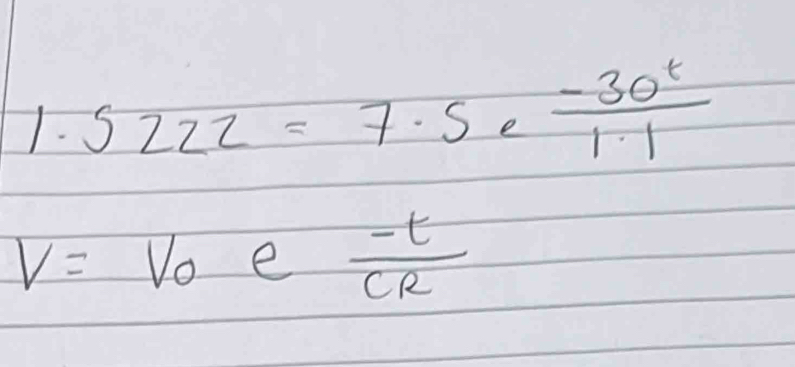 1.5222 = 7.5 e -30t/1.1
V = Vo e -t/CR